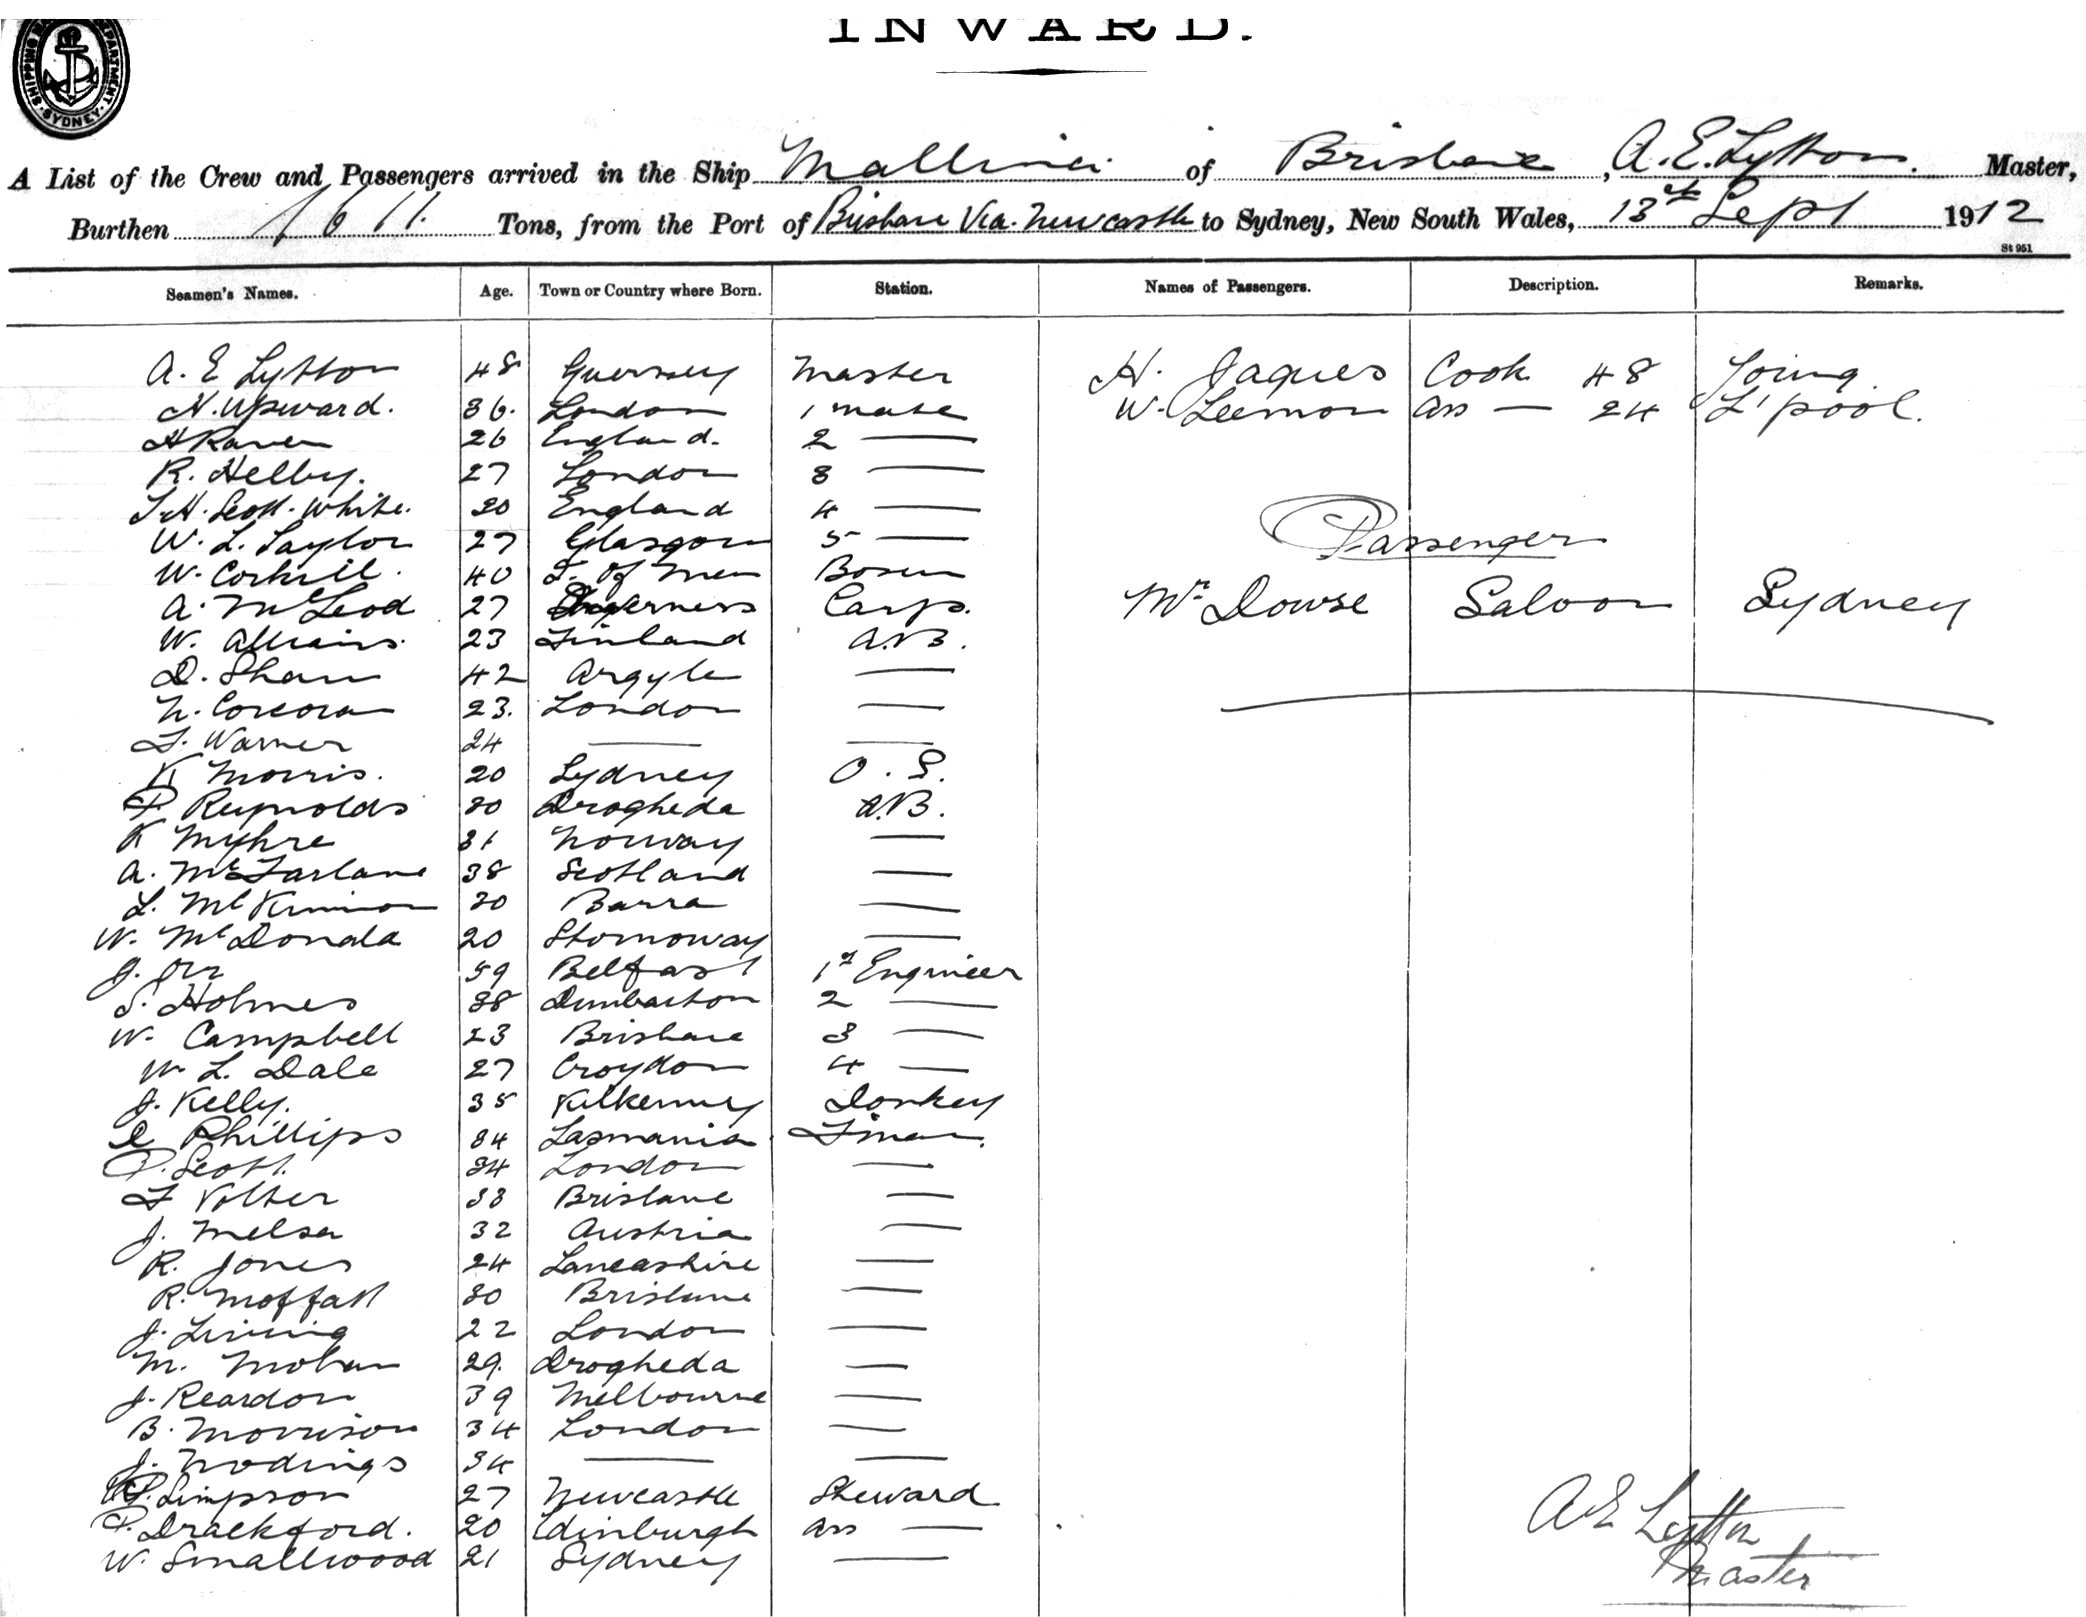 INWARD.
SHIPPING DEPARTMENT. SYDNEY
A List of the Crew and Passengers arrived in the Ship Mallina of Brisbane, A. E. Lytton. Master,
Burthen 1611. Tons, from the Port of Brisbane Via. Newcastle to Sydney, New South Wales, 13th Sept 1912
St 951
Seamen's Names. Age. Town or Country where Born. Station. Names of Passengers. Description. Remarks.
A. E Lytton 48 Guernsey Master H. Jaques Cook 48
N. Upward. 36. London 1 mate W. Leemon ass — 24 L'pool.
H Raven 26 England. 2 —
R. Helby. 27 London 3 —
J. H. Scott. White. 20 England 4 —
W. L. Taylor 27 Glasgow 5 —
Passenger
W. Corkill. 40 I. of Man Bosun
A. McLeod 27 Inverness Carp. Mr Dowse Saloon Sydney
W. 23 Finland A.B.
D. Shaw 42 Argyle —
N. Corcoran 23. London —
F. Warner 24 — —
K Morris. 20 Sydney O. S.
P Reynolds 30 Drogheda A.B.
K Myhre 31 Norway —
A. McFarlane 38 Scotland —
L. McKinnon 30 Barra —
W. McDonald 20 Stornoway —
J. Orr 59 Belfast 1st Engineer
S. Holmes 38 Dumbarton 2 —
W. Campbell 23 Brisbane 3 —
W L. Dale 27 Croydon 4 —
J. Kelly. 35 Kilkenny Donkey
E Phillips 34 Tasmania Fman.
P. Scott. 34 London —
F Volter 33 Brisbane —
J. Melsa 32 Austria —
R. Jones 24 Lancashire —
R. Moffatt 30 Brisbane —
J. 22 London —
M. Mohan 29. Drogheda —
J. Reardon 39 Melbourne —
B. Morrison 34 London —
J. Nodings 34 — —
Simpson 27 Newcastle Steward
P. Drackford. 20 Edinburgh ass —
W. Smallwood 21 Sydney —
A E Lytton
Master